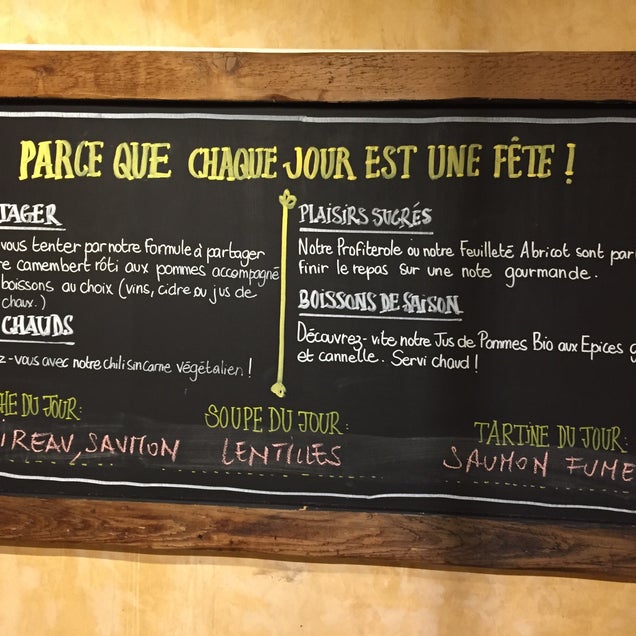 PARCE QUE CHAQUE JOUR EST UNE FÊTE !
TAGER
vous tenter par notre formule à partager
re camembert rôti aux pommes accompagné
boissons au choix (vins, cidre ou jus de
chaux.)
CHAUDS
z-vous avec notre chili sin carne végétalien !
PLAISIRS SUCRÉS
Notre Profiterole ou notre Feuilleté Abricot sont par
finir le repas sur une note gourmande.
BOISSONS DE SAISON
Découvrez-vite notre Jus de Pommes Bio aux Epices g
et cannelle. Servi chaud !
HE DU JOUR:
IREAU, SAUMON
SOUPE DU JOUR:
LENTILLES
TARTINE DU JOUR:
SAUMON FUME